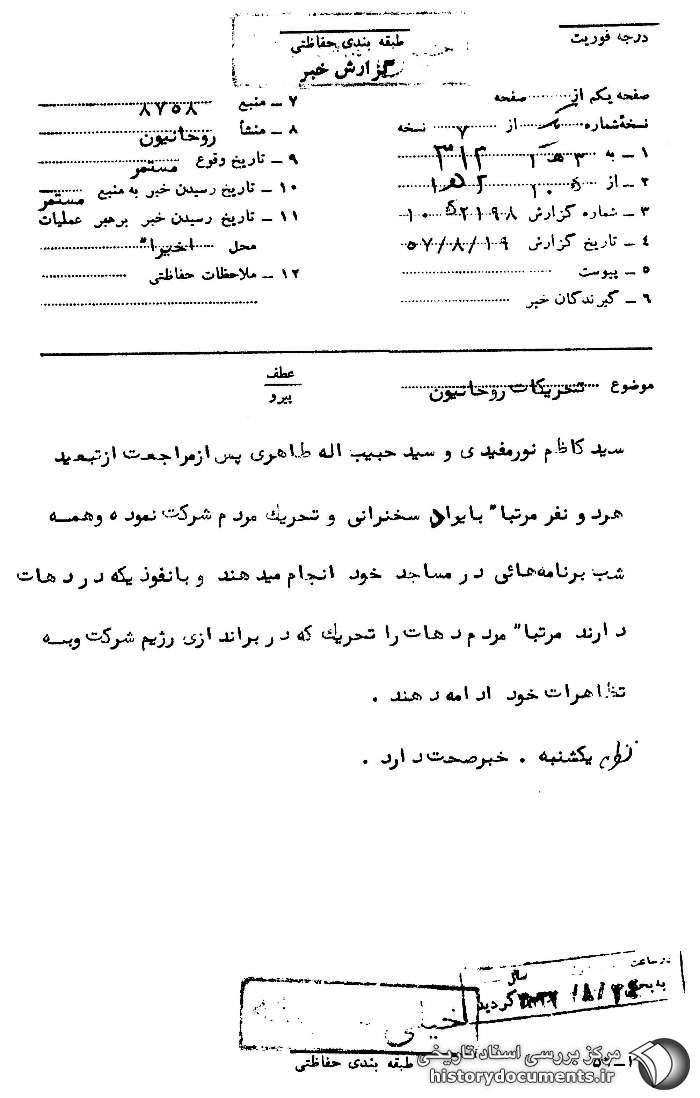 درجه فوریت
طبقه بندی حفاظتی
گزارش خبر
صفحه یکم از صفحه
نسخهٔ شماره یک از ۷ نسخه
۱ ـ به ۳ ه‍ ۱ ۳۱۲
۲ ـ از
۳ ـ شماره گزارش
۴ ـ تاریخ گزارش ۵۷/۸/۱۹
۵ ـ پیوست
۶ ـ گیرندگان خبر
۷ ـ منبع ۸۷۵۸
۸ ـ منشأ روحانیون
۹ ـ تاریخ وقوع مستمر
۱۰ ـ تاریخ رسیدن خبر به منبع مستمر
۱۱ ـ تاریخ رسیدن خبر برهبر عملیات
محل اخیرا"
۱۲ ـ ملاحظات حفاظتی
موضوع تحریکات روحانیون
عطف
پیرو
سید کاظم نورمفیدی و سید حبیب اله طاهری پس ازمراجعت ازتبعید
هردو نفر مرتبا" بایراد سخنرانی و تحریک مردم شرکت نموده وهمه
شب برنامه‌هائی در مساجد خود انجام میدهند و بانفوذیکه در دهات
دارند مرتبا" مردم دهات را تحریک که در براندازی رژیم شرکت وبه
تظاهرات خود ادامه دهند .
یکشنبه . خبرصحت دارد .
در ساعت
سال
گردید
خیلی
طبقه بندی حفاظتی
مرکز بررسی اسناد تاریخی
historydocuments.ir